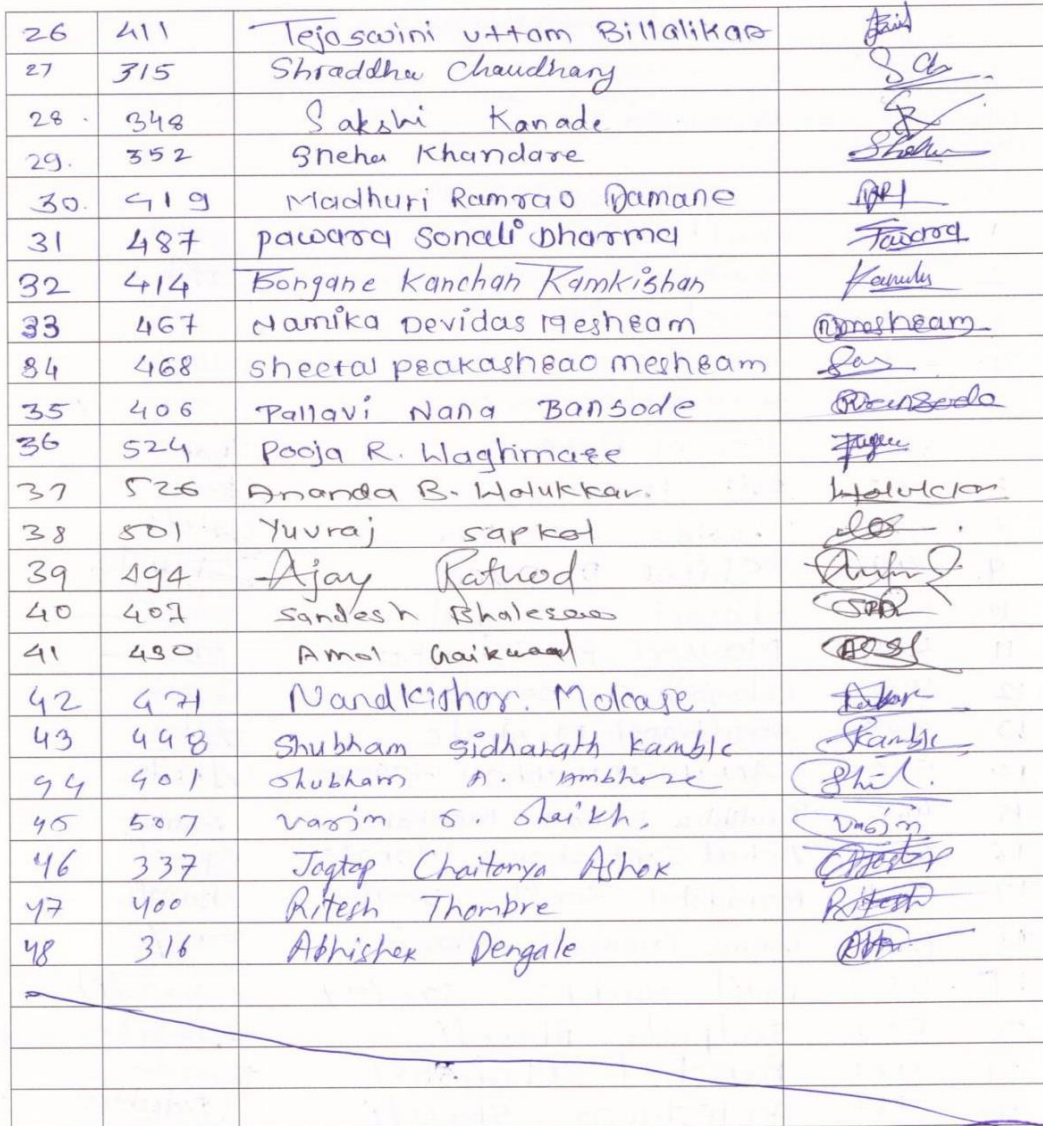 26 411 Tejaswini uttam Billalikar
27 315 Shraddha Chaudhary
28. 348 Sakshi Kanade
29. 352 Sneha Khandare
30. 419 Madhuri Ramrao Damane
31 487 pawara sonali Dharma Pawara
32 414 Bongane Kanchan Ramkishan
33 467 Namika Devidas Meshram Meshram
34 468 sheetal prakashrao meshram
35 406 Pallavi Nana Bansode Bansode
36 524 Pooja R. Waghmare
37 526 Ananda B. Holukkar.
38 501 Yuvraj sapkal
39 494 Ajay Rathod
40 407 Sandesh Bhalerao
41 430 Amol Gaikwad
42 471 Nandkishor. Mokase
43 448 Shubham sidharath kamble Skamble
44 401 Shubham A Ambhore
45 507 vasim S. Shaikh. vasim
46 337 Jagtap Chaitanya Ashok
47 400 Ritesh Thombre Ritesh
48 316 Abhishek Dengale